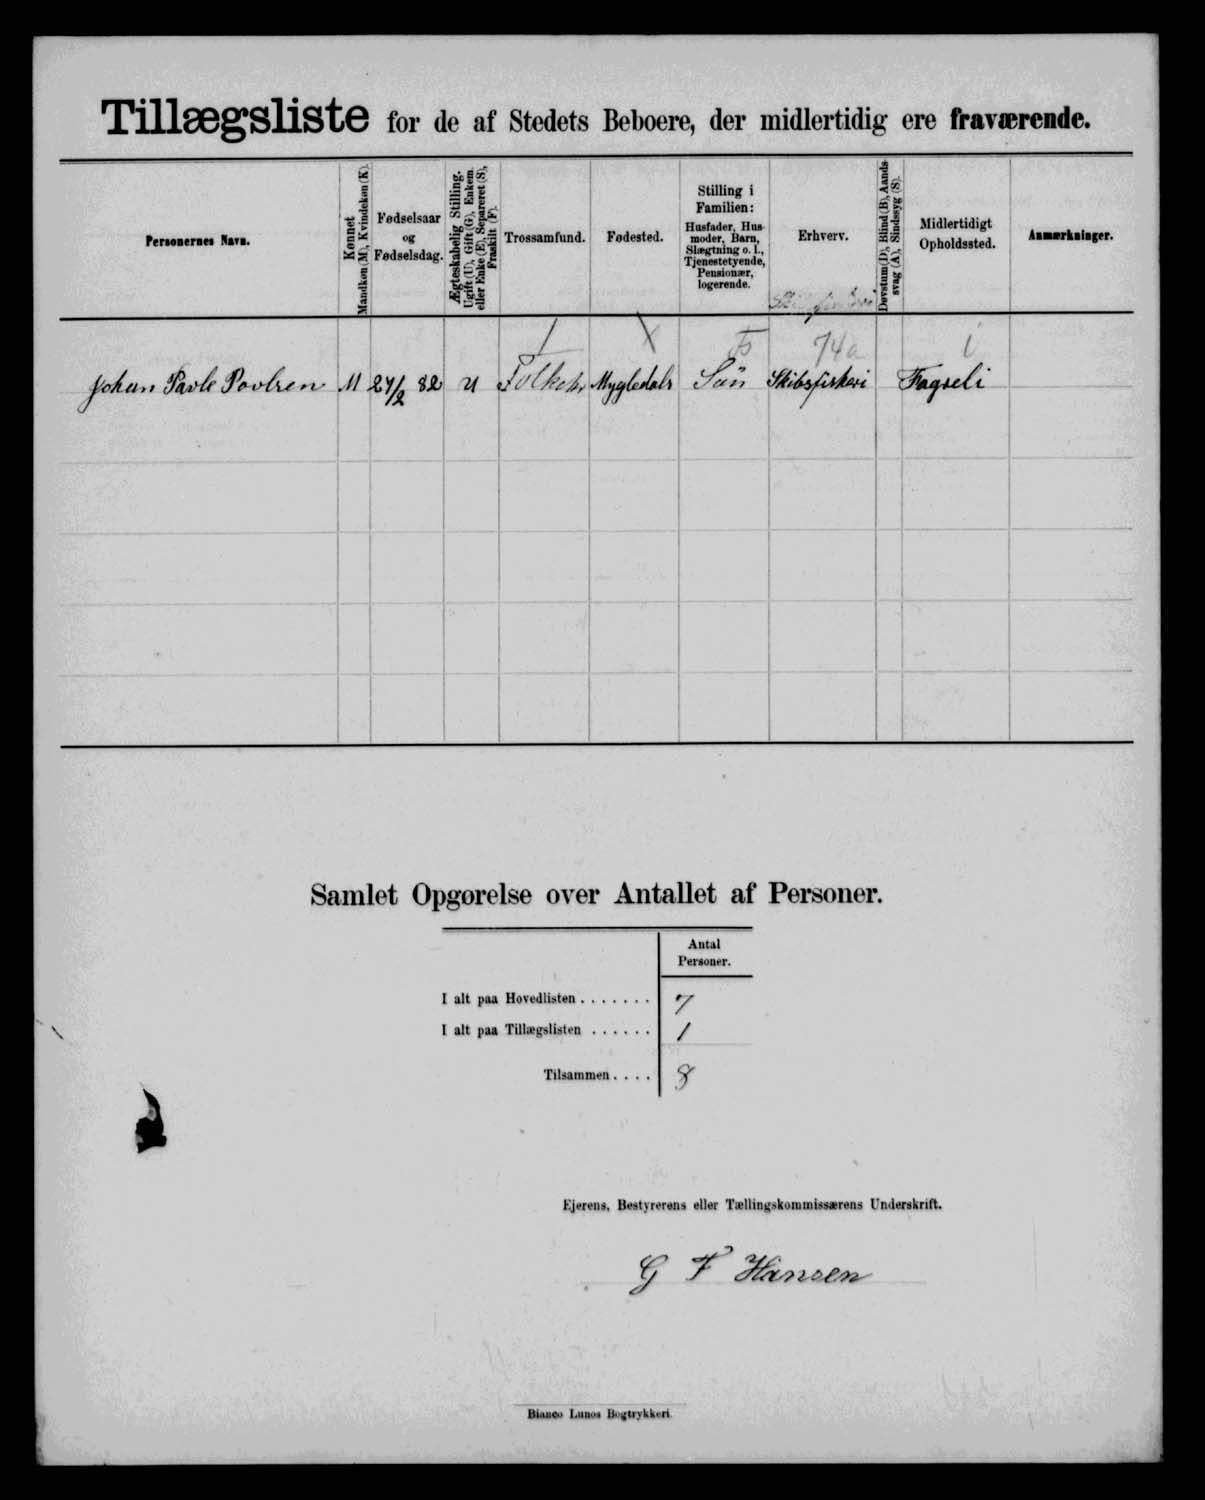 Tillægsliste for de af Stedets Beboere, der midlertidig ere fraværende.
Personernes Navn.
Kønnet
Mandkøn (M), Kvindekøn (K).
Fødselsaar
og
Fødselsdag.
Ægteskabelig Stilling.
Ugift (U), Gift (G), Enkem.
eller Enke (E), Separeret (S),
Fraskilt (F).
Trossamfund.
Fødested.
Stilling i
Familien:
Husfader, Hus-
moder, Barn,
Slægtning o. l.,
Tjenestetyende,
Pensionær,
logerende.
Erhverv.
Døvstum (D), Blind (B), Aands-
svag (A), Sindssyg (S).
Midlertidigt
Opholdssted.
Anmærkninger.
74a i
Johan Pavle Povlsen M 27/2 82 U Folkek. Mygledals Sön Skibsfiskeri Fagseli
Samlet Opgørelse over Antallet af Personer.
Antal
Personer.
I alt paa Hovedlisten . . . . . . . 7
I alt paa Tillægslisten . . . . . . 1
Tilsammen . . . . 8
Ejerens, Bestyrerens eller Tællingskommissærens Underskrift.
G F Hansen
Bianco Lunos Bogtrykkeri.